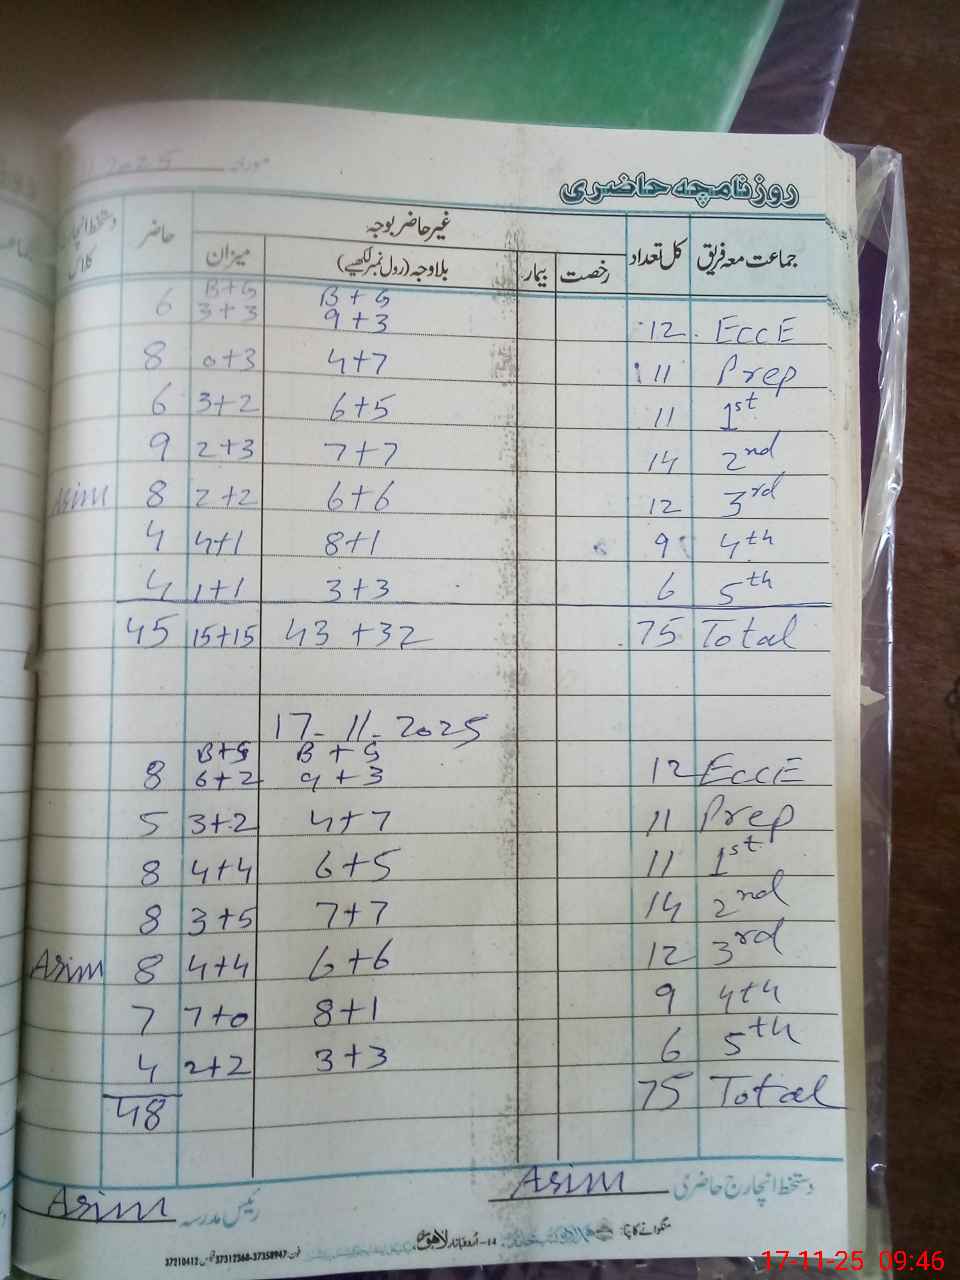 2025 مورخہ
روزنامچہ حاضری
جماعت معہ فریق کل تعداد غیر حاضر بوجہ حاضر دستخط انچارج کلاس
رخصت بیمار بلاوجہ (رول نمبر لکھیے) میزان
B + G B+G
ECCE 12 9+3 3+3 6
Prep 11 4+7 0+3 8
1st 11 6+5 3+2 6
2nd 14 7+7 2+3 9
3rd 12 6+6 2+2 8 Asim
4th 9 8+1 4+1 4
5th 6 3+3 1+1 4
Total 75 43+32 15+15 45
17-11-2025
B + G B+G
ECCE 12 9+3 6+2 8
Prep 11 4+7 3+2 5
1st 11 6+5 4+4 8
2nd 14 7+7 3+5 8
3rd 12 6+6 4+4 8 Asim
4th 9 8+1 7+0 7
5th 6 3+3 2+2 4
Total 75 48
دستخط انچارج حاضری Asim رئیس مدرسہ Asim
منگوانے کا پتہ: 14-اردو بازار لاہور
فون: 37312360-37358947 37210412
17-11-25 09:46